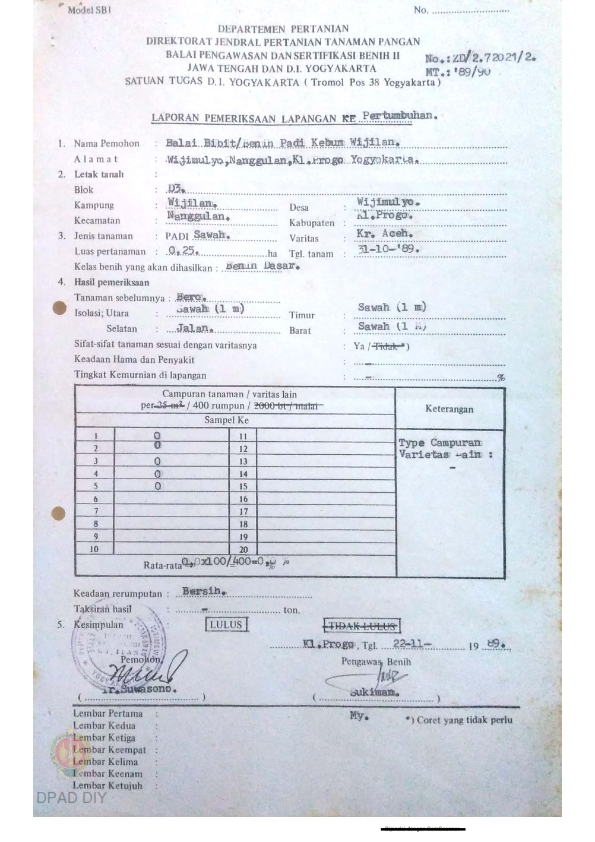 Model SB1 No. ............................
DEPARTEMEN PERTANIAN
DIREKTORAT JENDRAL PERTANIAN TANAMAN PANGAN
BALAI PENGAWASAN DAN SERTIFIKASI BENIH II
JAWA TENGAH DAN D.I. YOGYAKARTA
SATUAN TUGAS D.I. YOGYAKARTA ( Tromol Pos 38 Yogyakarta )
No.:ZD/2.72021/2.
MT.: '89/90
LAPORAN PEMERIKSAAN LAPANGAN KE Pertumbuhan.
1. Nama Pemohon : Balai Bibit/Benin Padi Kebun Wijilan.
A l a m a t : Wijimulyo,Nanggulan,Kl.Progo Yogyakarta.
2. Letak tanah :
Blok : D3.
Kampung : Wijilan. Desa : Wijimulyo.
Kecamatan : Nanggulan. Kabupaten : Kl.Progo.
3. Jenis tanaman : PADI Sawah. Varitas : Kr. Aceh.
Luas pertanaman : 0,25. ha Tgl. tanam : 31-10-'89.
Kelas benih yang akan dihasilkan : Benin Dasar.
4. Hasil pemeriksaan
Tanaman sebelumnya : Bero.
Isolasi; Utara : Sawah (1 m) Timur : Sawah (1 m)
Selatan : Jalan. Barat : Sawah (1 m)
Sifat-sifat tanaman sesuai dengan varitasnya : Ya / Tidak *)
Keadaan Hama dan Penyakit : –
Tingkat Kemurnian di lapangan : – %
Campuran tanaman / varitas lain
per 25 m² / 400 rumpun / 2000 bt / malai
Keterangan
Sampel Ke
1 0 11
2 0 12
3 0 13
4 0 14
5 0 15
6 16
7 17
8 18
9 19
10 20
Type Campuran
Varietas -ain :
–
Rata-rata 0,0x100/400=0,0 %
Keadaan rerumputan : Bersih.
Taksiran hasil : – ton.
5. Kesimpulan : LULUS TIDAK LULUS
Kl.Progo, Tgl. 22-11- 19 89.
Pemohon, Pengawas Benih
Ir.Suwasono. Sukiman.
Lembar Pertama : My. *) Coret yang tidak perlu
Lembar Kedua :
Lembar Ketiga :
Lembar Keempat :
Lembar Kelima :
Lembar Keenam :
Lembar Ketujuh :
DPAD DIY